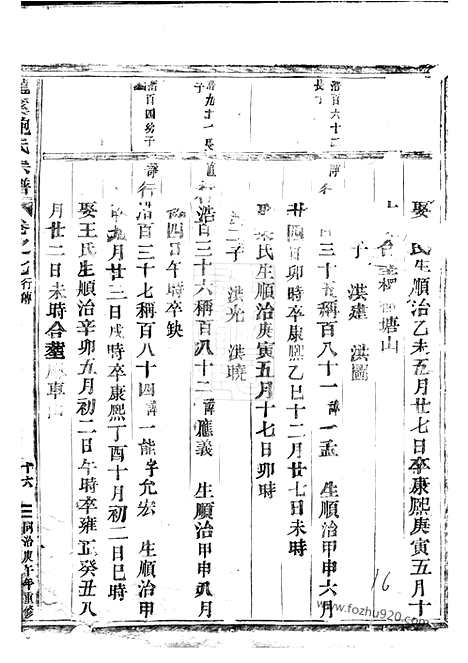 娶 氏生順治乙未五月廿七日卒康熙庚寅五月十
合 塘山
子 洪建 洪圖
浩百六十二
長子
行 百三十五稱百八十一諱一孟 生順治甲申六月
廿四 卯時卒康熙乙巳十二月廿七日未時
氏生順治庚寅五月十七日卯時
子 洪光 洪曉
浩九十一長
子
行浩百三十六稱百八十二諱應義 生順治甲申八月
四日午時卒缺
浩百四幼子
諱行浩百三十七稱百八十四諱一能字允宏 生順治甲
九月廿三日戌時卒康熙丁酉十月初二日巳時
娶王氏生順治辛卯五月初二日午時卒雍正癸丑八
月廿二日未時合塟 車
鮑氏宗譜
卷之七
行傳
十六
同治庚午年重修
16
www.fozhu920.com